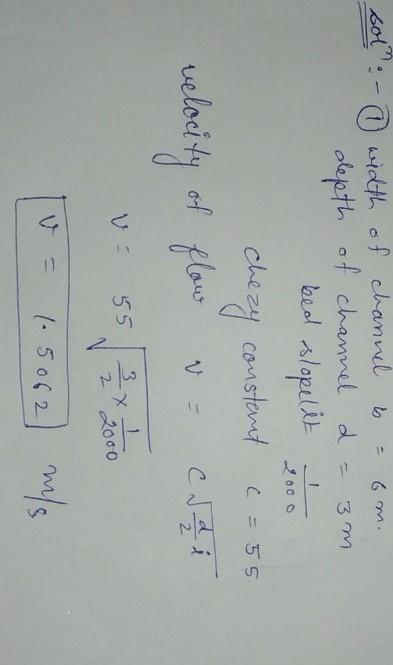 Solⁿ :- ① width of channel b = 6 m.
depth of channel d = 3 m
bed slope i = 1/2000
chezy constant c = 55
velocity of flow v = c√(d/2 i)
v = 55 √(3/2 × 1/2000)
v = 1.5062 m/s